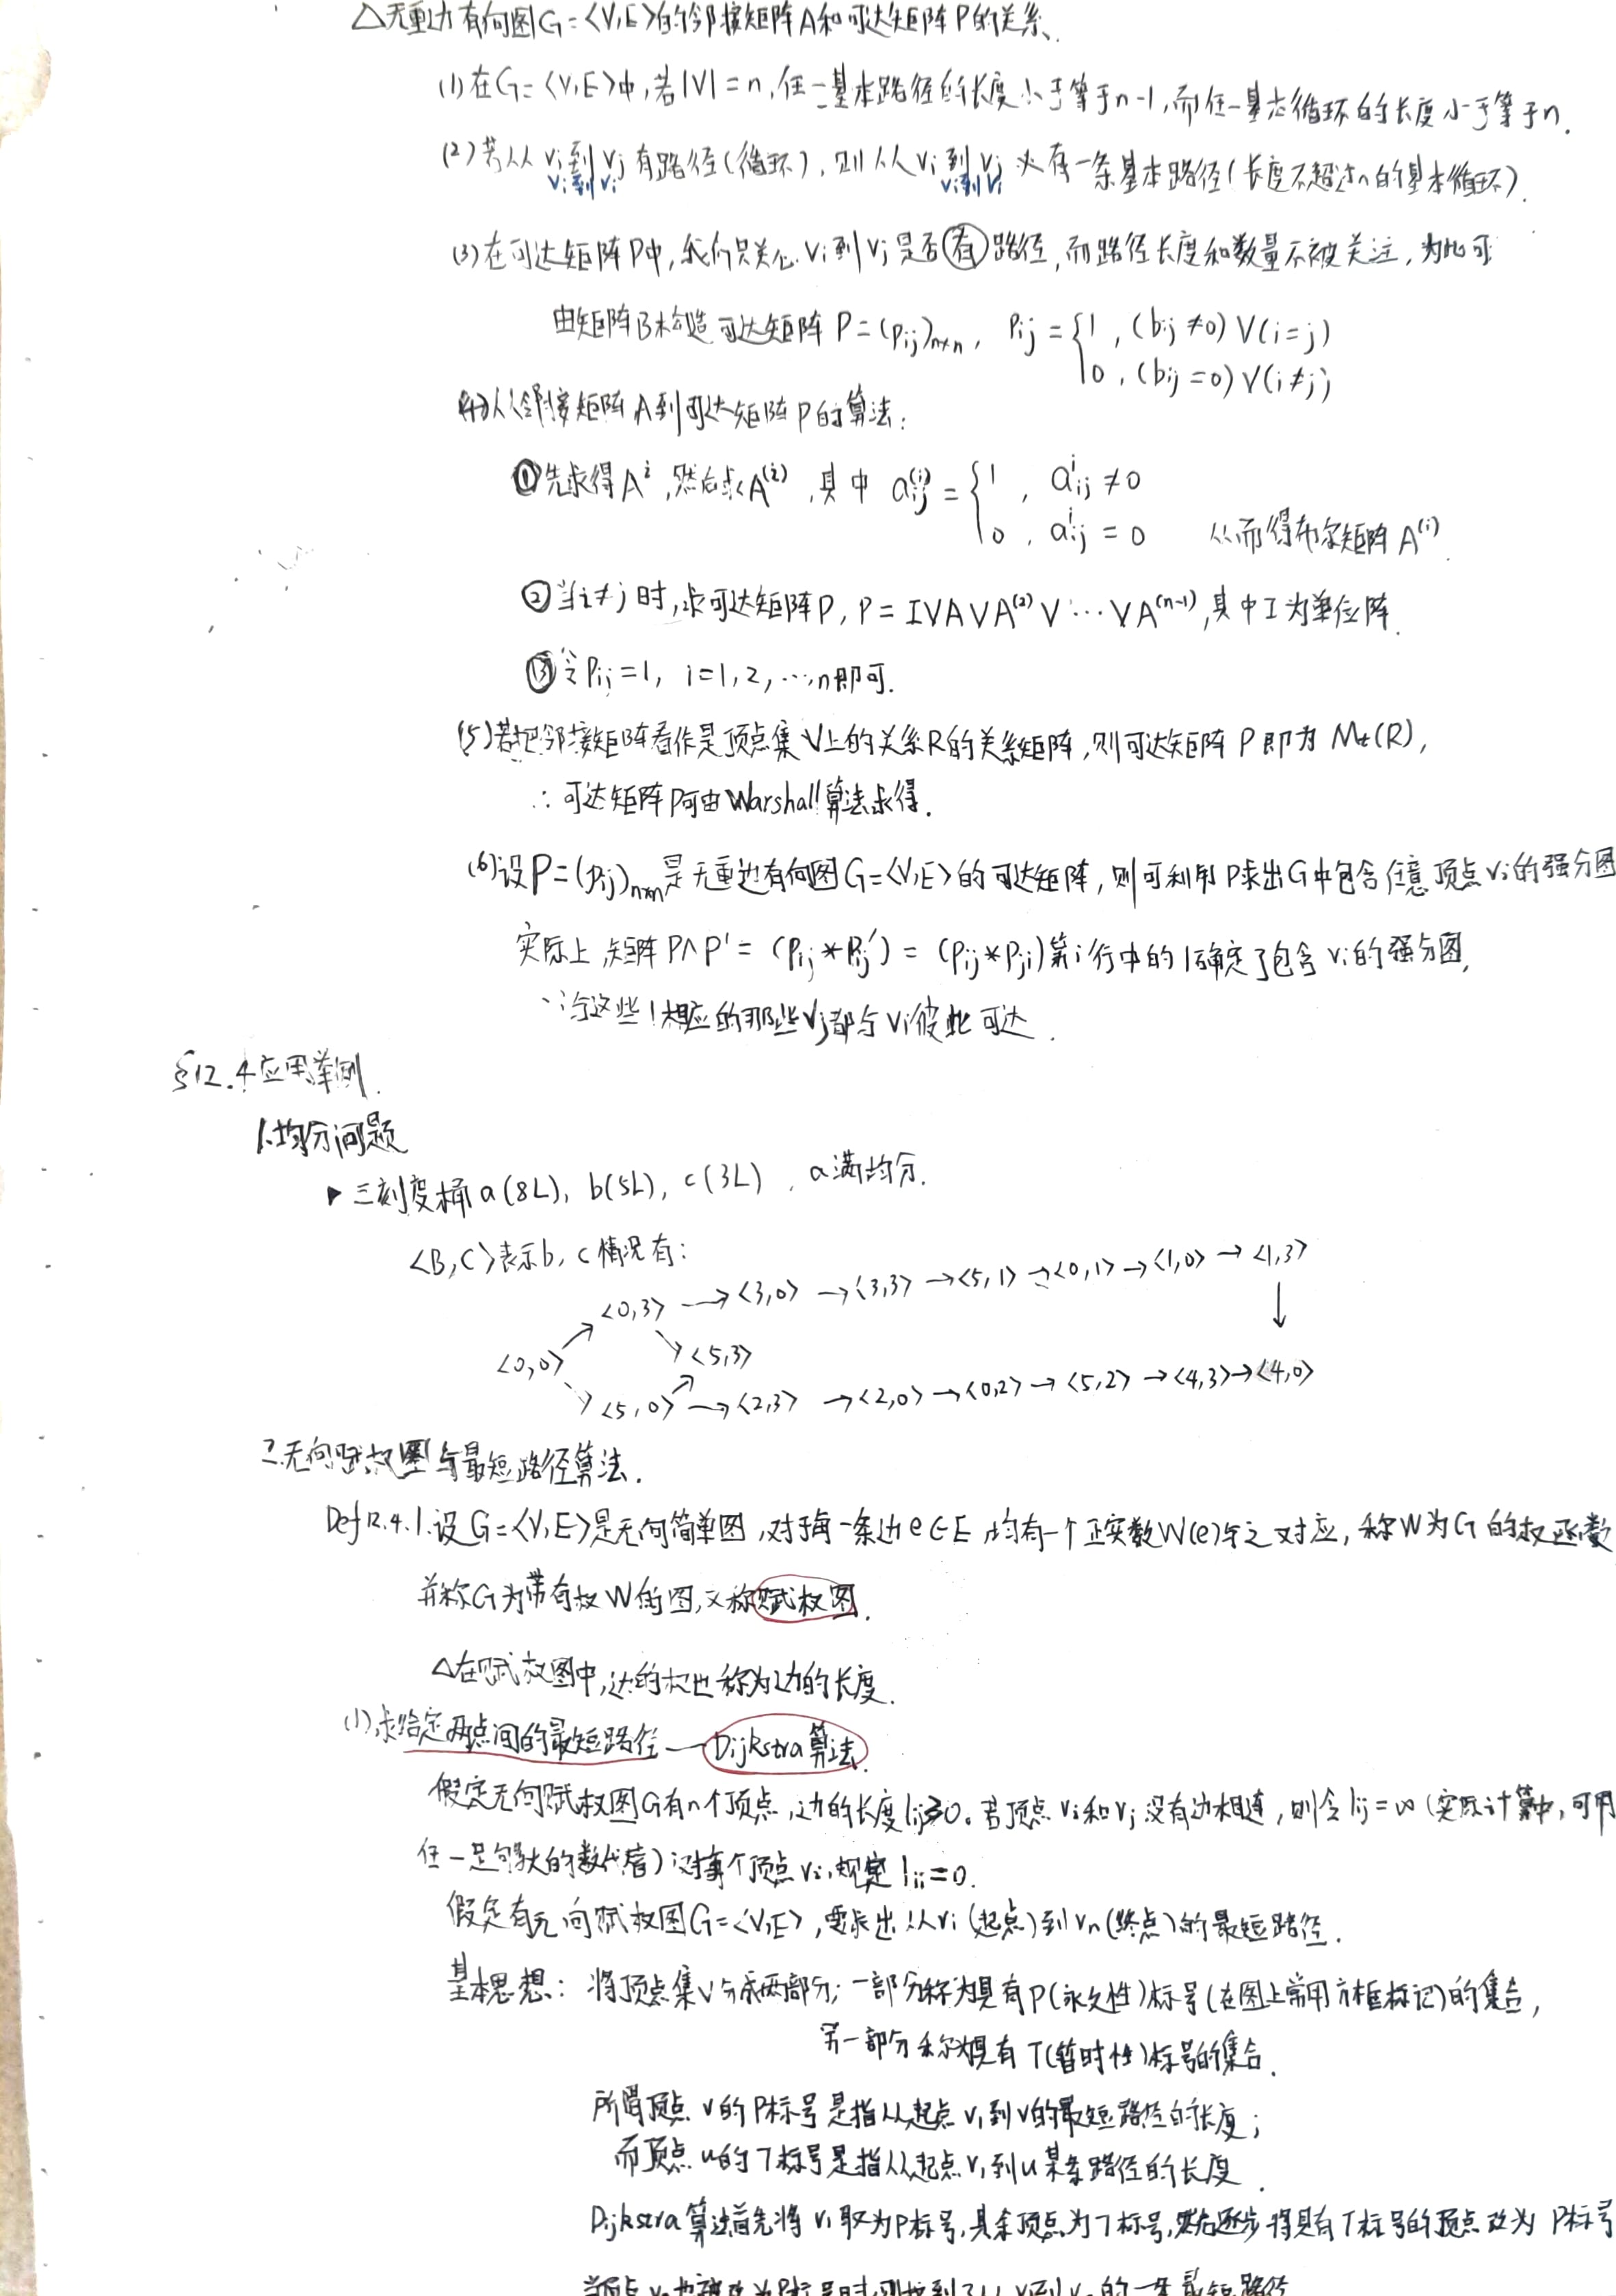 △无重边有向图G=<V,E>的邻接矩阵A和可达矩阵P的关系.
(1)在G=<V,E>中,若|V|=n,任一基本路径的长度小于等于n-1,而任一基本循环的长度小于等于n.
(2)若从vi到vj有路径(循环),则从vi到vj必有一条基本路径(长度不超过n的基本循环).
vi到vi vi到vi
(3)在可达矩阵P中,我们只关心vi到vj是否有路径,而路径长度和数量不被关注,为此可
由矩阵B构造可达矩阵P=(pij)n×n, pij={1,(bij≠0)∨(i=j)
0,(bij=0)∨(i≠j)
(4)从邻接矩阵A到可达矩阵P的算法:
①先求得Aⁱ,然后求A⁽ⁱ⁾,其中 aij⁽ⁱ⁾={1, aⁱij≠0
0, aⁱij=0 从而得布尔矩阵A⁽ⁱ⁾.
②当i≠j时,求可达矩阵P, P=I∨A∨A⁽²⁾∨…∨A⁽ⁿ⁻¹⁾,其中I为单位阵.
③令Pii=1, i=1,2,…,n即可.
(5)若把邻接矩阵看作是顶点集V上的关系R的关系矩阵,则可达矩阵P即为Mt(R),
∴可达矩阵P可由Warshall算法求得.
(6)设P=(pij)n×n是无重边有向图G=<V,E>的可达矩阵,则可利用P求出G中包含任意顶点vi的强分图
实际上,矩阵P∧P'=(Pij*Pij')=(Pij*Pji)第i行中的1确定了包含vi的强分图,
∵与这些1相应的那些vj都与vi彼此可达.
§12.4应用举例.
1.均分问题
▶三刻度桶a(8L), b(5L), c(3L), a满均分.
<B,C>表示b,c情况有:
<0,3>→<3,0>→<3,3>→<5,1>→<0,1>→<1,0>→<1,3>
↗ ↘ ↓
<0,0> <5,3>
↘ ↗
<5,0>→<2,3>→<2,0>→<0,2>→<5,2>→<4,3>→<4,0>
2.无向赋权图与最短路径算法.
Def12.4.1.设G=<V,E>是无向简单图,对于每一条边e∈E,均有一个正实数W(e)与之对应,称W为G的权函数
并称G为带有权W的图,又称赋权图.
△在赋权图中,边的权也称为边的长度.
(1)求给定两点间的最短路径——Dijkstra算法.
假定无向赋权图G有n个顶点,边的长度lij≥0。若顶点vi和vj没有边相连,则令lij=∞(实际计算中,可用
任一足够大的数代替)对每个顶点vi,规定lii=0.
假定有无向赋权图G=<V,E>,要求出从v1(起点)到vn(终点)的最短路径.
基本思想:将顶点集V分成两部分;一部分称为具有P(永久性)标号(在图上常用方框标记)的集合,
另一部分称为具有T(暂时性)标号的集合.
所谓顶点v的P标号是指从起点v1到v的最短路径的长度;
而顶点u的T标号是指从起点v1到u某条路径的长度.
Dijkstra算法首先将v1取为P标号,其余顶点为T标号,然后逐步将具有T标号的顶点改为P标号
当顶点vn也被改为P标号时,则找到了从v1到vn的一条最短路径